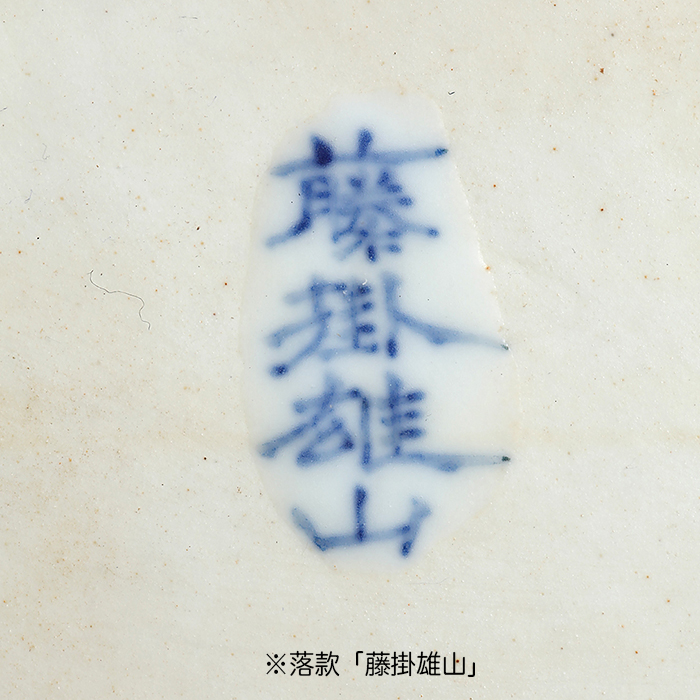 藤掛雄山
※落款「藤掛雄山」